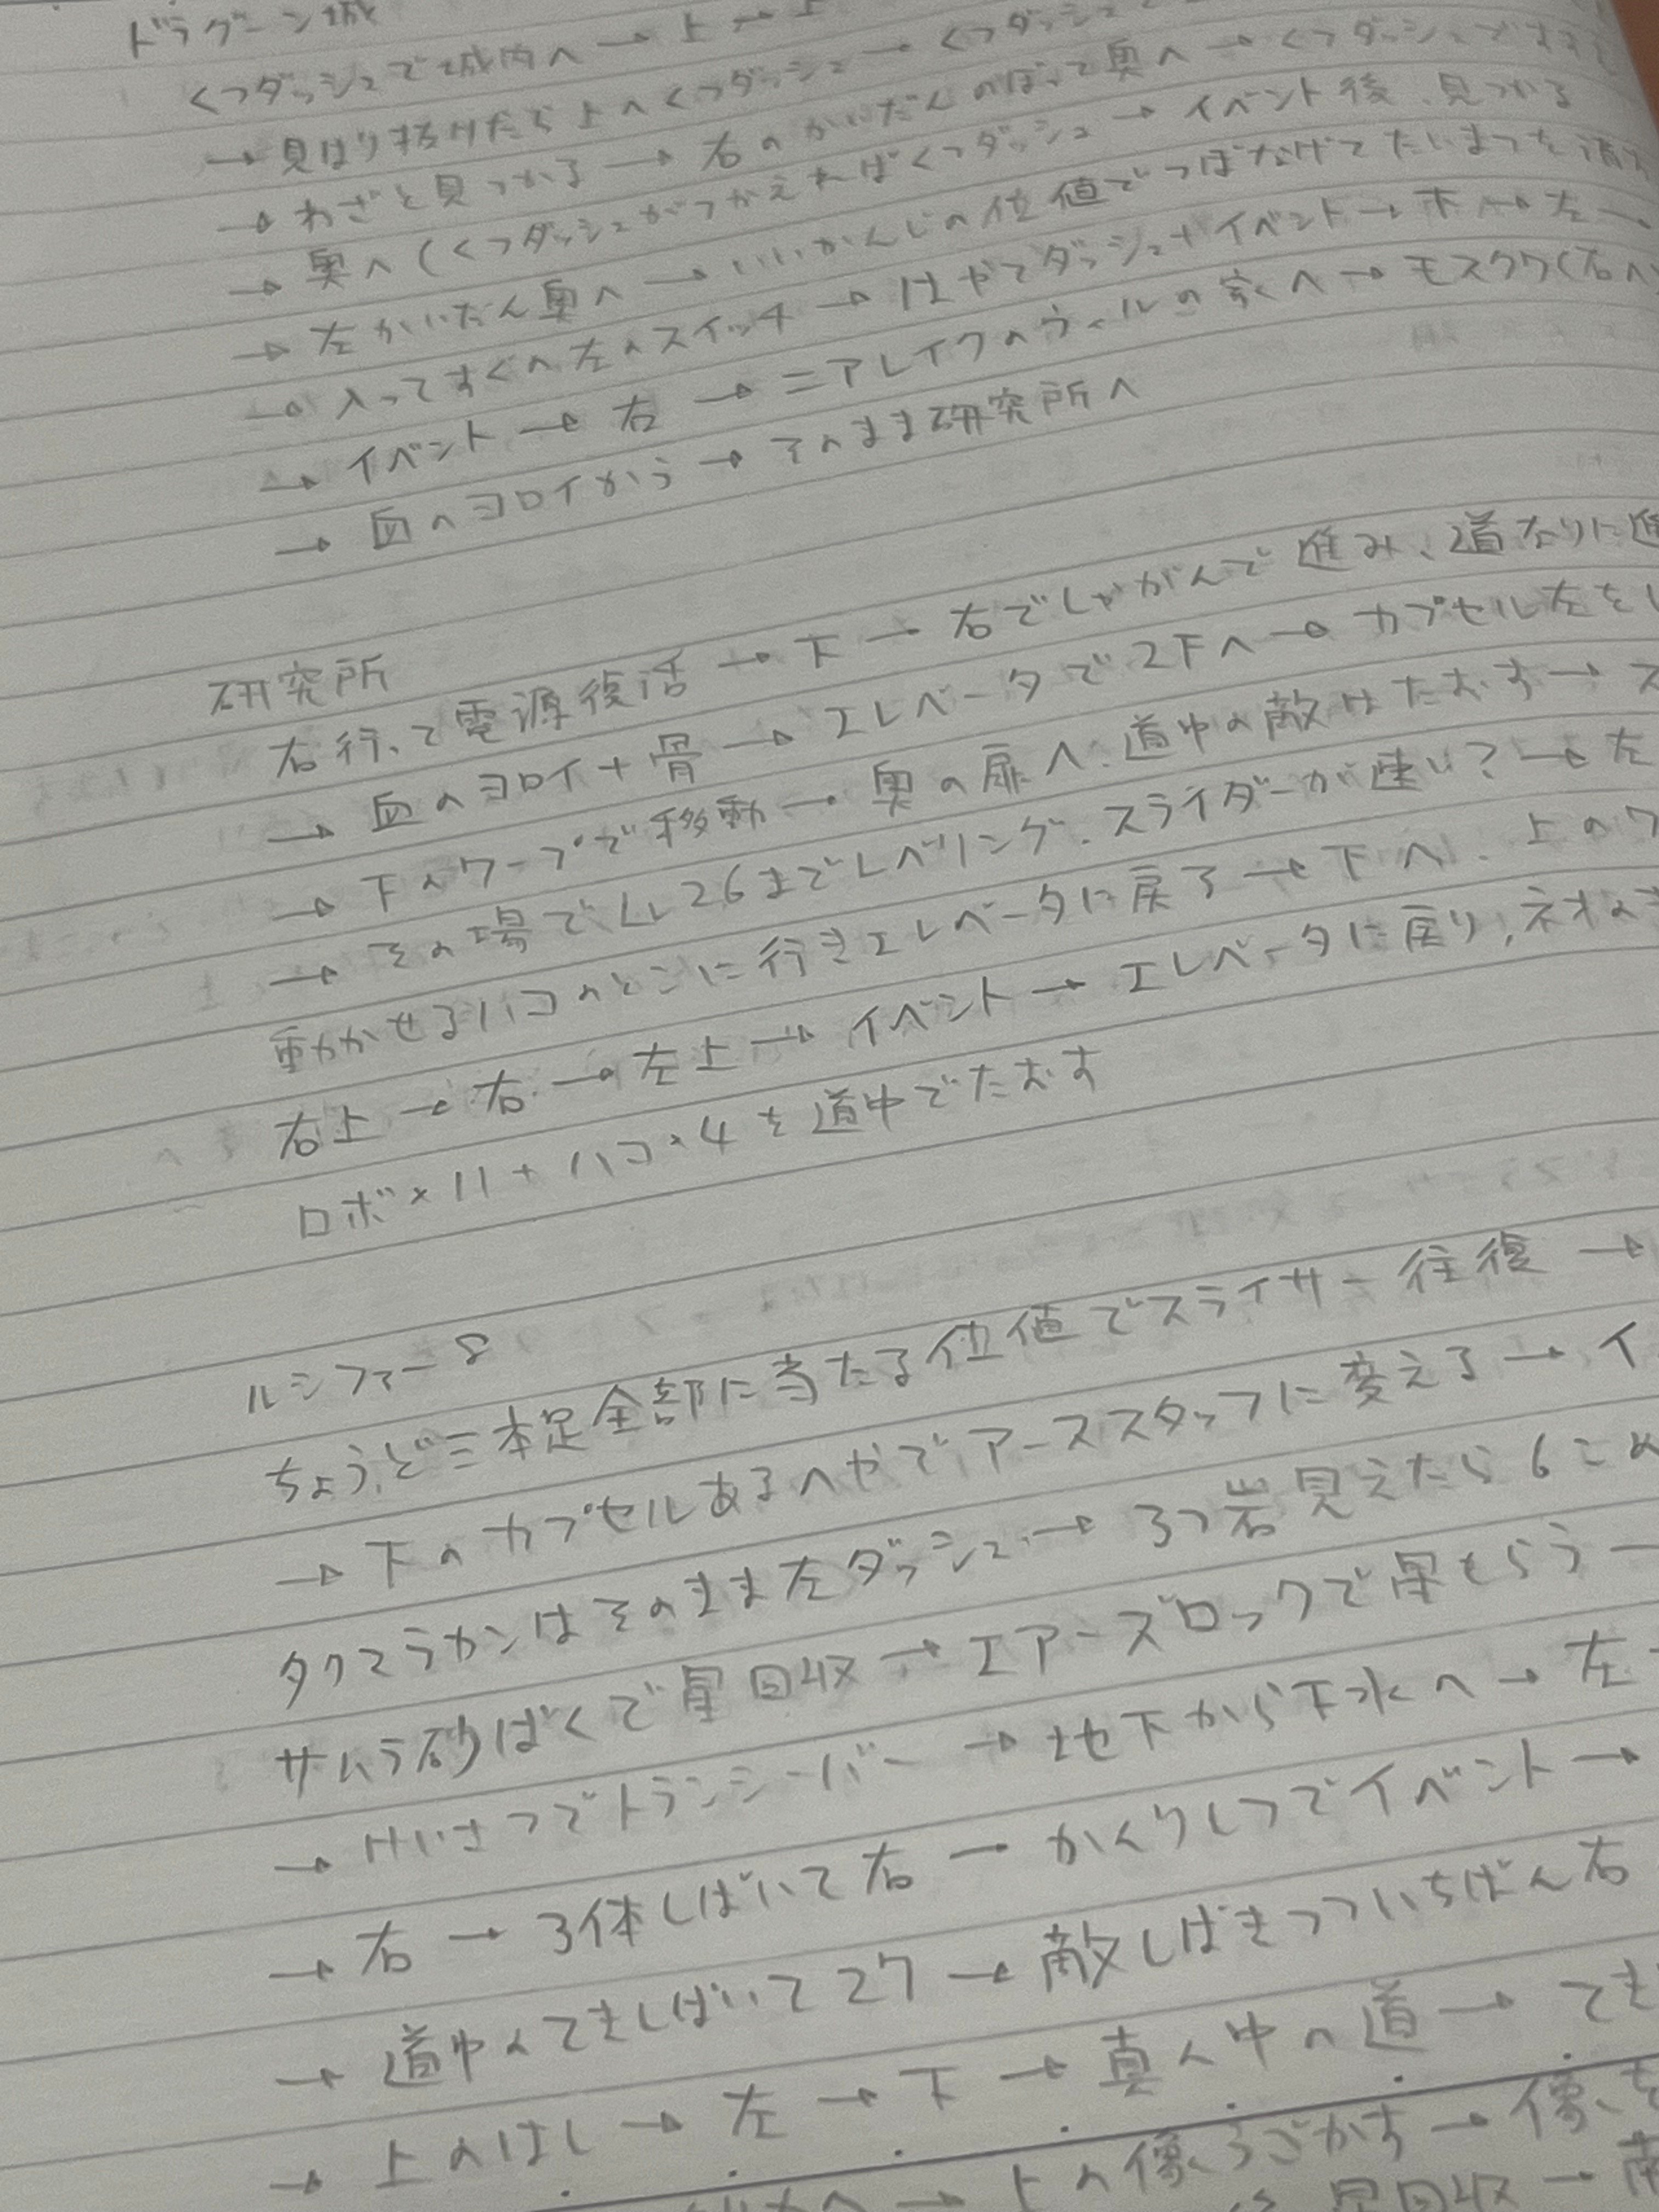 ドラグーン城
くつダッシュで城内へ→上→上
→見はり抜けたら上へくつダッシュ→くつダッシュ
→わざと見つかる→右のかいだんのぼって奥へ→くつダッシュで
→奥へ(くつダッシュがつかえればくつダッシュ→イベント後、見つかる
→左かいだん奥へ→いいかんじの位値でつばなげてたいまつを消す
→入ってすぐの左のスイッチ→はやてダッシュ+イベント→下→左→
→イベント→右→ニアレイクのウィルの家へ→モスクワ(右へ
→血のヨロイかう→そのまま研究所へ
研究所
右行って電源復活→下→右でしゃがんで進み、道なりに進
→血のヨロイ+骨→エレベータで2下へ→カプセル左を
→下のワープで移動→奥の扉へ、道中の敵はたおす→ス
→その場でLv26までレベリング、スライダーが速い?→左
動かせるハコのとこに行きエレベータに戻る→下へ、上のワ
右上→右→左上→イベント→エレベータに戻り、ネオ
ロボ×11+ハコ×4を道中でたおす
ルシファー8
ちょうど三本足全部に当たる位値でスライサー往復→
→下のカプセルあるへやでアーススタッフに変える→イ
タクマラカンはそのまま左ダッシュ→3つ岩見えたら6こめ
サムラ砂ばくで星回収→エアーズロックで星もらう→
→けいさつでトランシーバー→地下から下水へ→左
→右→3体しばいて右→かくりしつでイベント→
→道中のてきしばいて27→敵しばきつついちばん右
→上のはし→左→下→真ん中の道→てき
→上の像うごかす→像を
星回収→南